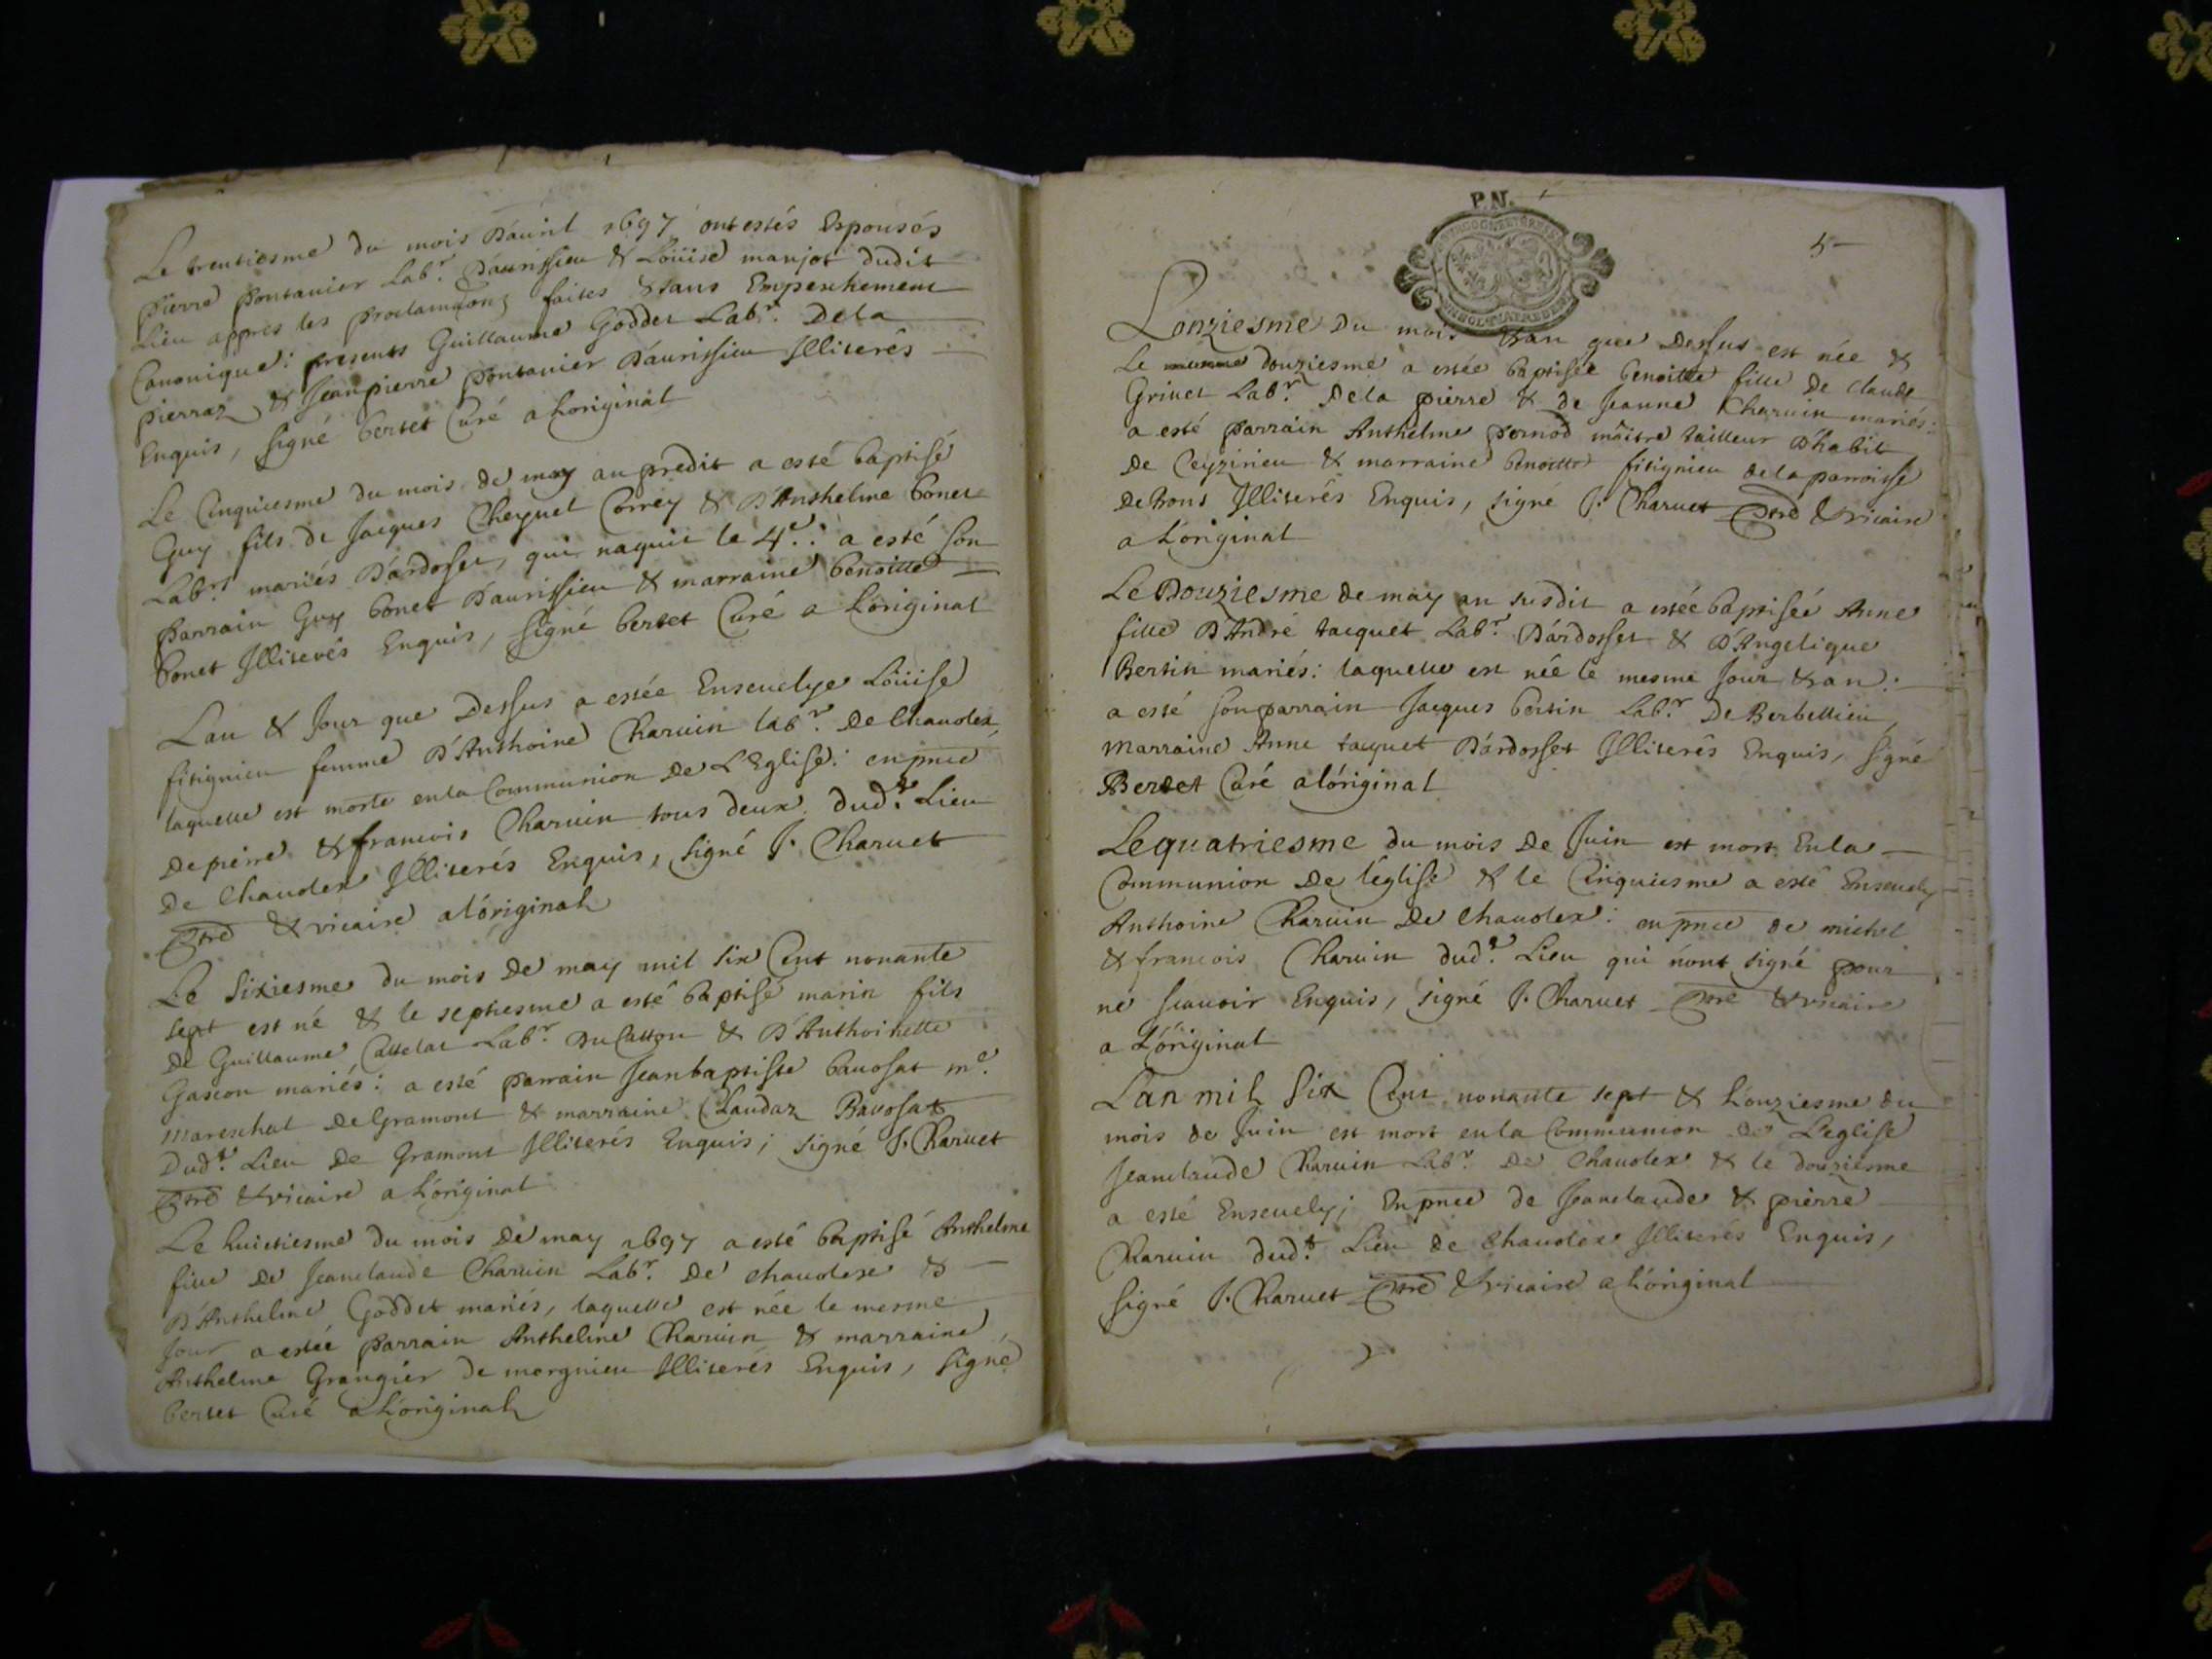 Le trentiesme du mois D'avril 1697 ont estés Espousés
pierre pontanier Labr. D'aurissieu & Loüise manjot dudit
Lieu appres les proclamaõns faites & sans Empeschement
Canonique: presents Guillaume Goddet Labr. Dela
pierraz & Jeanpierre pontanier D'aurissieu Jlliterés
Enquis, signé bertet Curé a Loriginal
Le Cinquiesme du mois de may an predit a esté baptisé
Guy fils de Jacques Cheynel Correy & D'Anthelme bonet
Labrs. mariés D'ardosset, qui naquit le 4e.: a esté son
parrain Guy bonet D'aurissieu & marraine benoitte
bonet Jlliterés Enquis, signé bertet Curé a L'original
L'an & Jour que Dessus a estée Ensevelye Loüise
fitignieu femme D'Anthoine Charvin labr. De Chaudex,
laquelle est morte enla Communion De L'Eglise: en pnce
De pierre & francois Charvin tous deux dudt. Lieu
De Chaudex Jlliterés Enquis, signé J. Charvet
Ptre & vicaire a l'original
Le sixiesme du mois De may mil six Cent nonante
sept est né & le septiesme a esté baptisé marin fils
De Guillaume Cattelat Labr. Du Catton & D'Anthoinette
Gascon mariés: a esté parrain Jeanbaptiste bavosat me.
mareschal De Gramont & marraine Claudaz Bavosat
Dudt. Lieu De Gramont Jlliterés Enquis; signé J. Charvet
Ptre & vicaire a L'original
Le huictiesme du mois De may 1697 a esté baptisé Anthelme
fille De Jeanclaude Charvin Labr. De chaudex &
D'Anthelme Goddet mariés, laquelle est née le mesme
Jour a estée parrain Anthelme Charvin & marraine
Anthelme Grangier de morgnieu Jlliterés Enquis, signé
bertet Curé a L'original
P.N.
5
L'onziesme Du mois & an que Dessus est née &
Le douziesme a estée baptisée benoitte fille De claude
Grivet Labr. Dela pierre & de Jeanne Charvin mariés:
a esté parrain Anthelme pernod maitre tailleur D'habit
De Ceyzirieu & marraine benoitte fitignieu dela parroisse
De Bons Jlliterés Enquis, signé J. Charvet Ptre & vicaire
a L'original
Le Douziesme de may an susdit a estée baptisée Anne
fille D'André tacquet Labr. D'ardosset & D'Angelique
Bertin mariés: laquelle est née le mesme Jour & an:
a esté son parrain Jacques bertin Labr. De Berbellieu,
marraine Anne tacquet D'ardosset Jlliterés Enquis, signé
Bertet Curé a l'original
Le quatriesme du mois De Juin est mort Enla
Communion De l'église & le Cinquiesme a esté Ensevely
Anthoine Charvin De Chaudex: en pnce de michel
& francois Charvin dudt. Lieu qui n'ont signé pour
ne scavoir Enquis, signé J. Charvet Ptre & vicaire
a L'original
L'an mil six Cent nonante sept & L'onziesme du
mois de Juin est mort enla Communion De L'eglise
Jeanclaude Charvin Labr. De Chaudex & le douziesme
a esté Ensevely; En pnce de Jeanclaude & pierre
Charvin dudt. Lieu de Chaudex Jlliterés Enquis,
signé J. Charvet Ptre & vicaire a L'original